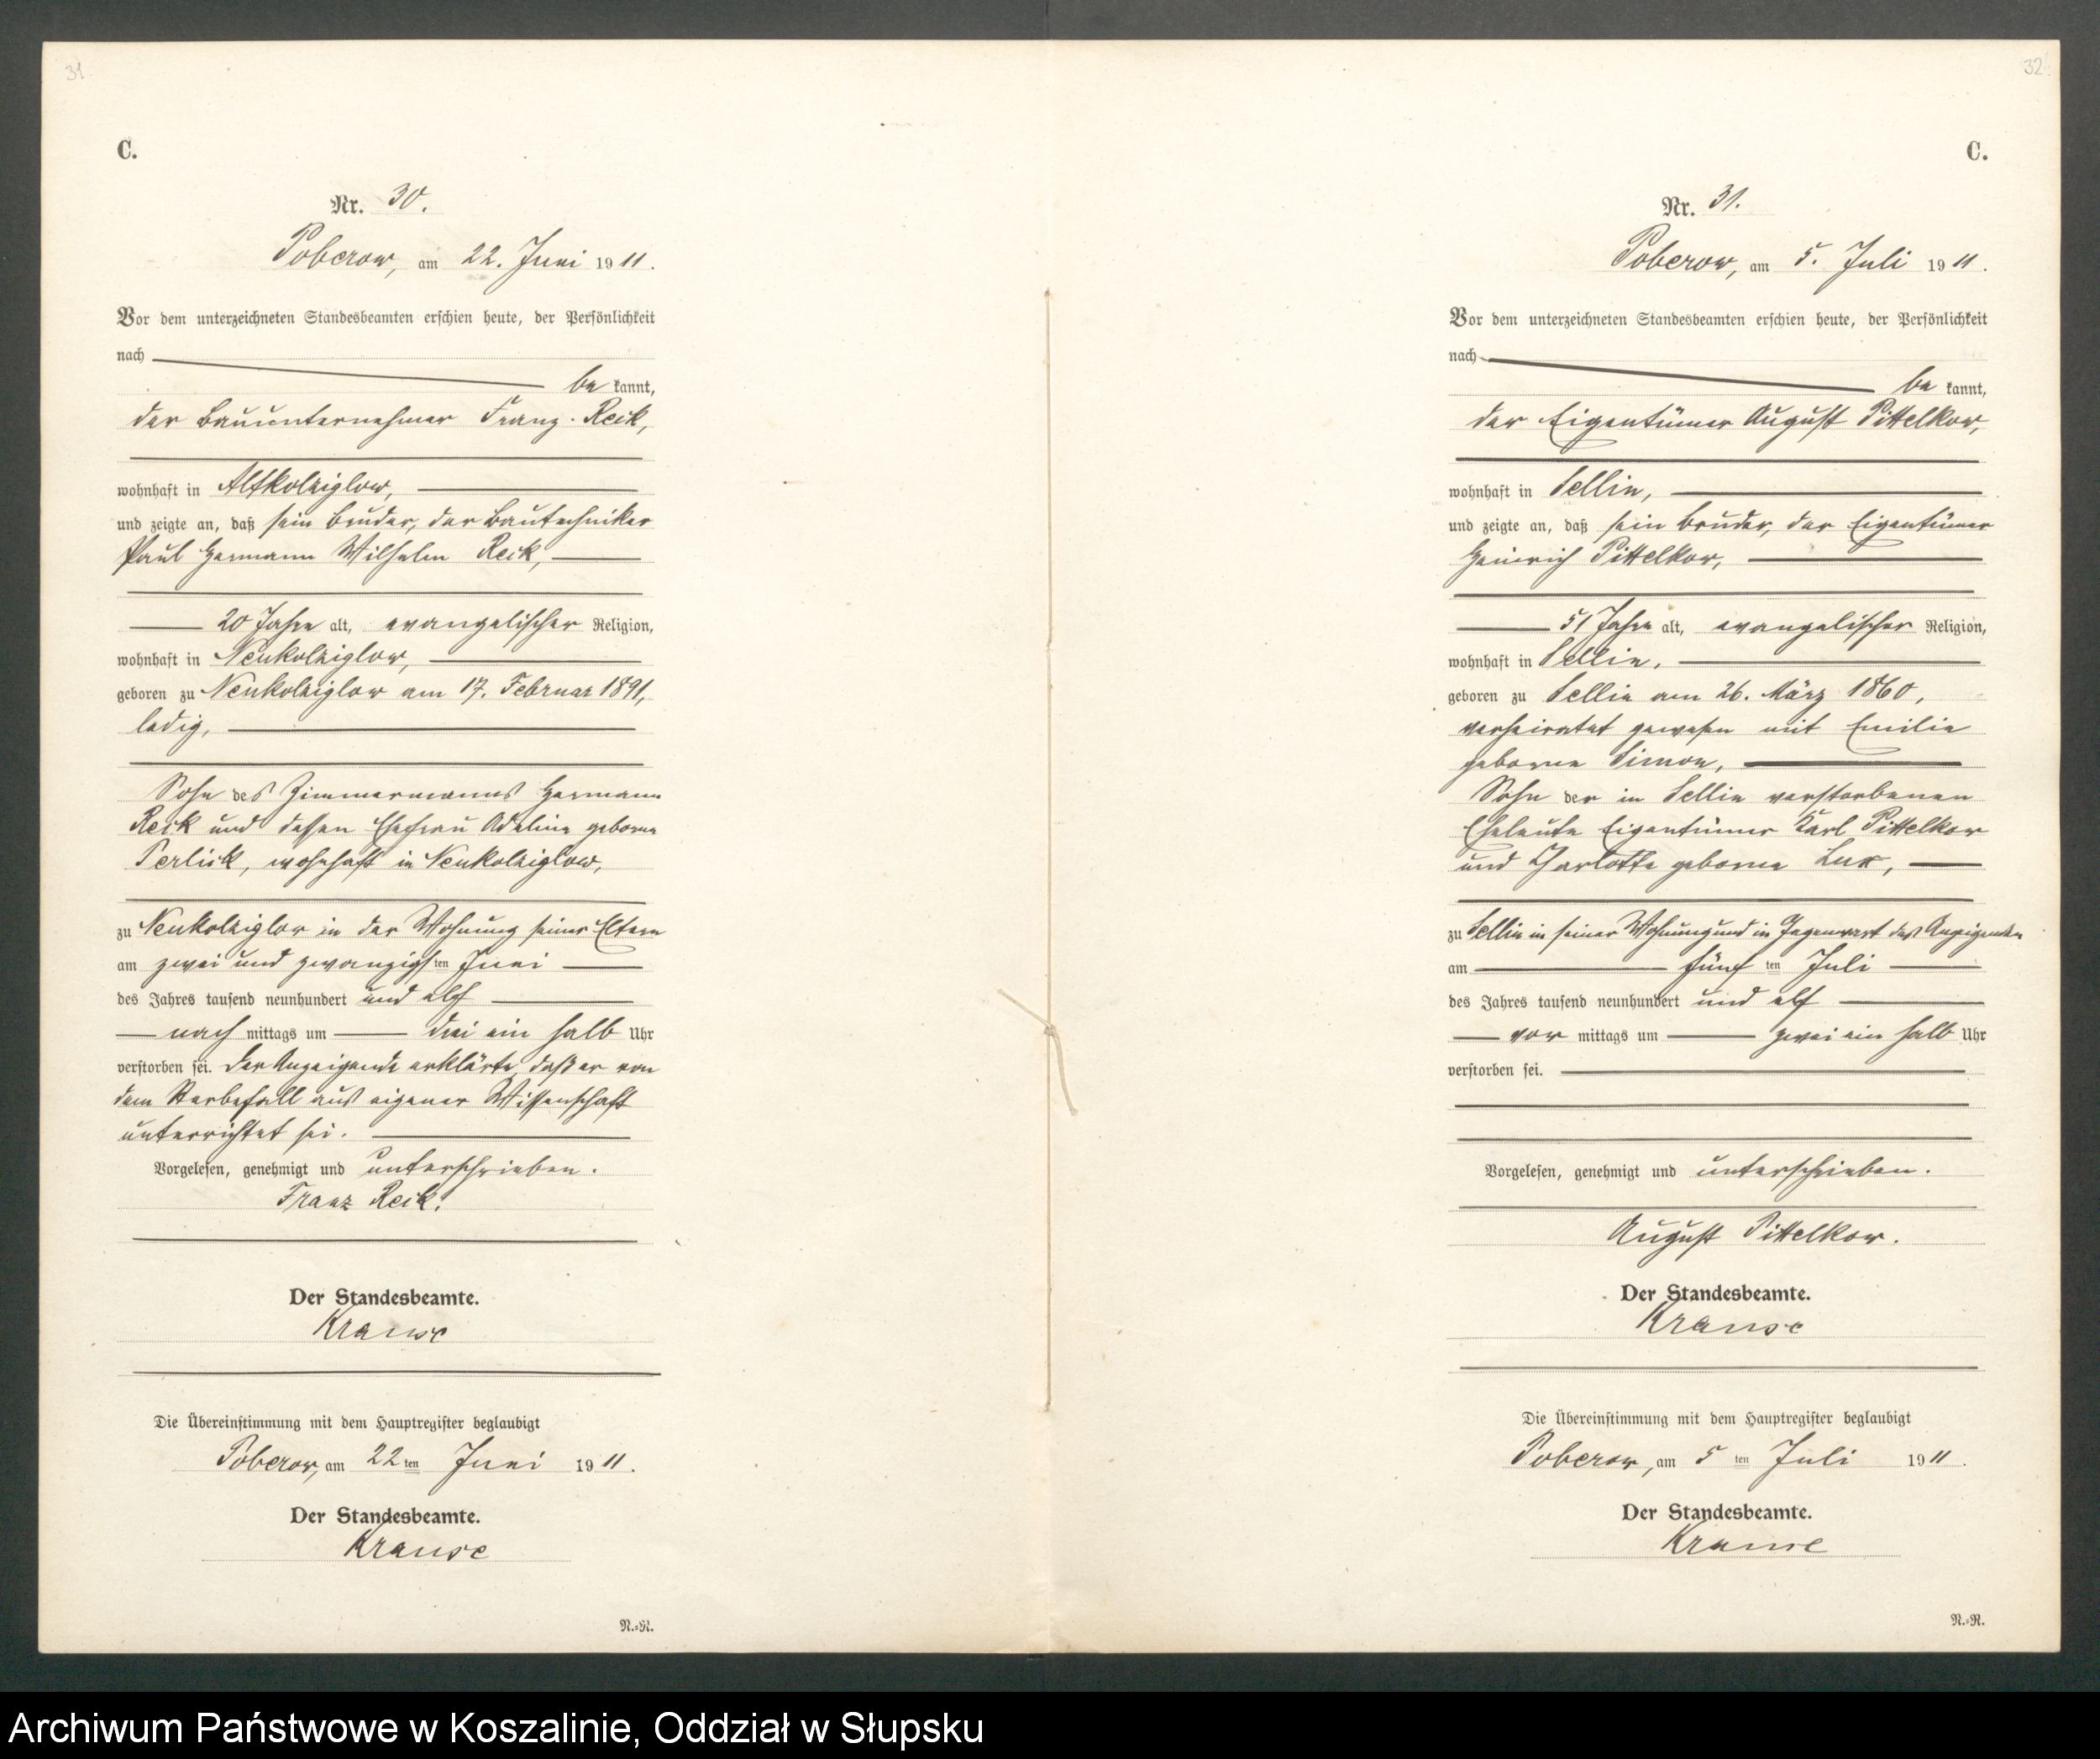 31
C.
Nr. 30.
Poberow, am 22. Juni 1911.
Vor dem unterzeichneten Standesbeamten erschien heute, der Persönlichkeit
nach
be kannt,
der Bauunternehmer Franz Reck,
wohnhaft in Altkolziglow,
und zeigte an, daß sein Bruder, der Bautechniker
Paul Hermann Wilhelm Reck,
20 Jahre alt, evangelischer Religion,
wohnhaft in Neukolziglow,
geboren zu Neukolziglow am 17. Februar 1891,
ledig,
Sohn des Zimmermanns Hermann
Reck und dessen Ehefrau Adeline geborne
Perlick, wohnhaft in Neukolziglow,
zu Neukolziglow in der Wohnung seiner Eltern
am zwei und zwanzigsten Juni
des Jahres tausend neunhundert und elf
nach mittags um drei ein halb Uhr
verstorben sei. Der Anzeigende erklärte, daß er von
dem Sterbefall aus eigener Wissenschaft
unterrichtet sei.
Vorgelesen, genehmigt und unterschrieben.
Franz Reck.
Der Standesbeamte.
Krause
Die Übereinstimmung mit dem Hauptregister beglaubigt
Poberow, am 22ten Juni 1911.
Der Standesbeamte.
Krause
N.=R.
32
C.
Nr. 31.
Poberow, am 5. Juli 1911.
Vor dem unterzeichneten Standesbeamten erschien heute, der Persönlichkeit
nach
be kannt,
der Eigentümer August Pittelkow,
wohnhaft in Sellin,
und zeigte an, daß sein Bruder, der Eigentümer
Heinrich Pittelkow,
51 Jahre alt, evangelischer Religion,
wohnhaft in Sellin,
geboren zu Sellin am 26. März 1860,
verheiratet gewesen mit Emilie
geborne Simon,
Sohn der in Sellin verstorbenen
Eheleute Eigentümer Karl Pittelkow
und Charlotte geborne Lux,
zu Sellin in seiner Wohnung und in Gegenwart des Anzeigenden
am fünften Juli
des Jahres tausend neunhundert und elf
vor mittags um zwei ein halb Uhr
verstorben sei.
Vorgelesen, genehmigt und unterschrieben.
August Pittelkow.
Der Standesbeamte.
Krause
Die Übereinstimmung mit dem Hauptregister beglaubigt
Poberow, am 5ten Juli 1911.
Der Standesbeamte.
Krause
N.=R.
Archiwum Państwowe w Koszalinie, Oddział w Słupsku